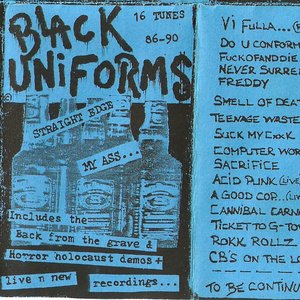 BLACK
UNiFORMS
16 TUNES
86-90
STRAIGHT EDGE
MY ASS...
Includes the
Back from the grave &
Horror holocaust demos+
live n new
recordings...
Vi FULLA...
DO U CONFORM
FUCKOFANDDIE
NEVER SURRE
FREDDY
SMELL OF DEA
TEENAGE WASTE
SUCK MY CXCK
COMPUTER WOR
SACRIFICE
ACiD PUNK (LIVE
A GOOD COP..(LIV
CANNiBAL CARN
TICKET TO G-TOW
ROKK ROLLZ
CB'S ON THE LO
TO BE CONTINU